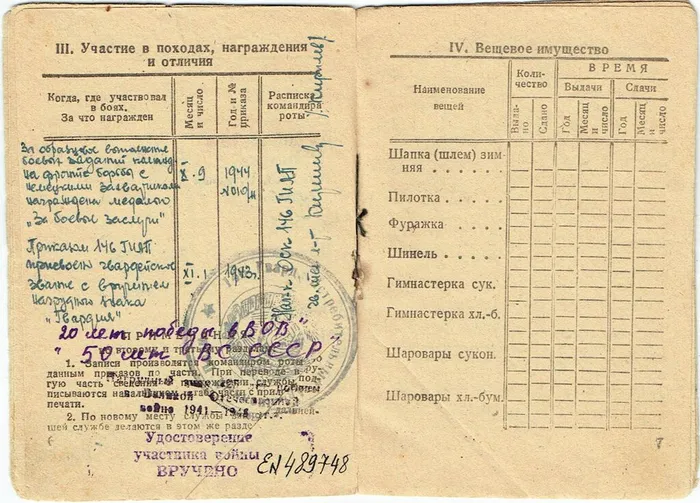 III. Участие в походах, награждения
и отличия
Когда, где участвовал
в боях.
За что награжден
Месяц
и число
Год и №
приказа
Расписка
командира
роты
За образцовое выполнение
боевых заданий команд.
на фронте борьбы с
немецкими захватчиками
награждена медалью
"За боевые заслуги"
IX. 9
1944
№019/н
Приказом 146 ГИАП
присвоено гвардейское
звание с вручением
нагрудного знака
"Гвардия"
XI.1
1943г.
146 ГИАП
20 лет победы в ВОВ"
"50 лет ВС СССР"
1. Записи производятся командиром роты
данным приказов по части. При переводе в дру-
гую часть сведения о прохождении службы под-
писываются
печати.
Великой Отечественной
войне 1941—1945
2. По новому месту службы
шей службе делаются в этом же разделе
Удостоверение
участника войны
ВРУЧЕНО
ЕN 489748
6
IV. Вещевое имущество
Наименование
вещей
Коли-
чество
ВРЕМЯ
Выдачи
Сдачи
Выда-
но
Сдано
Год
Месяц
и
число
Год
Месяц
и число
Шапка (шлем) зим-
няя
Пилотка
Фуражка
Шинель
Гимнастерка сук.
Гимнастерка хл.-б.
Шаровары сукон.
Шаровары хл.-бум.
7